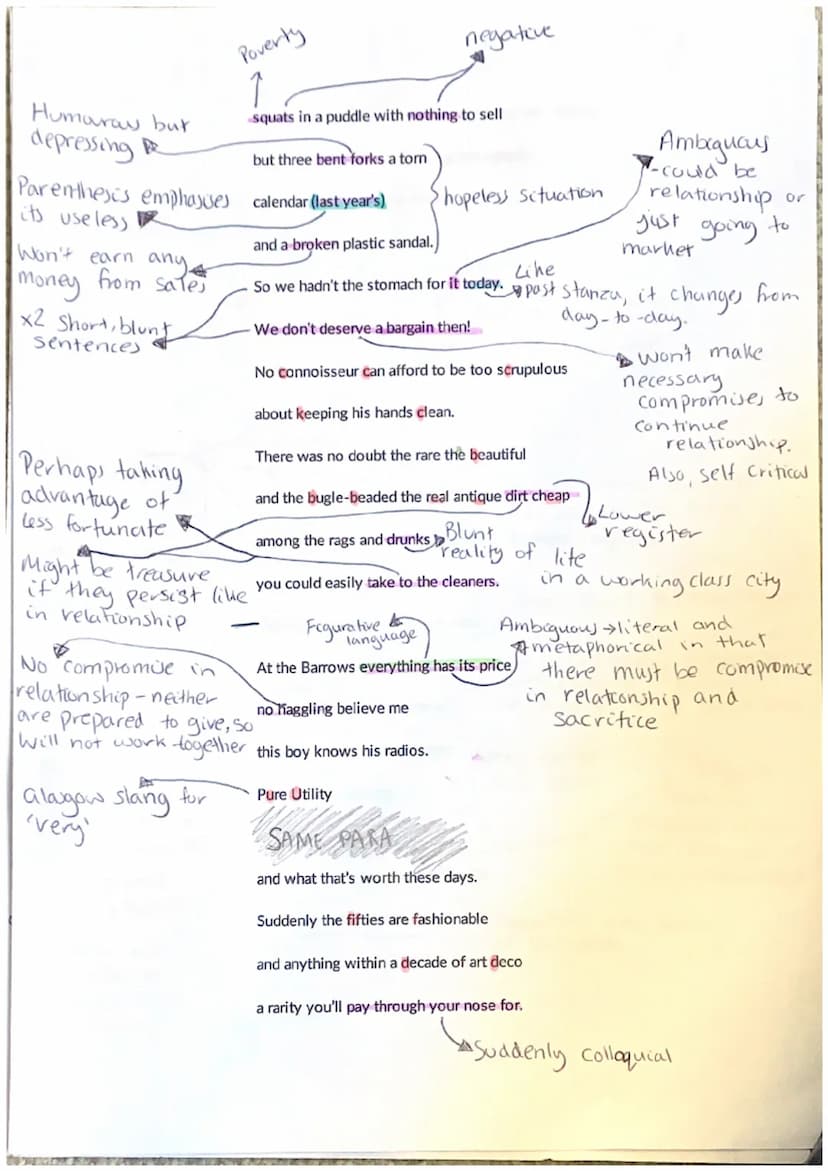 Poverty
negative
squats in a puddle with nothing to sell
Humaraus but
depressing
but three bent forks a torn
Ambiguous
- could be
relationship or
just going to
market
Parenthesis emphasises
its useless
calendar (last year's)
hopeless situation
and a broken plastic sandal.
Won't earn any
money from sales
So we hadn't the stomach for it today.
Like
past stanza, it changes from
day-to-day.
x2 short, blunt
sentences
We don't deserve a bargain then!
Won't make
necessary
compromises to
continue
relationship.
Also, self critical
No connoisseur can afford to be too scrupulous
about keeping his hands clean.
There was no doubt the rare the beautiful
Perhaps taking
advantage of
less fortunate
and the bugle-beaded the real antique dirt cheap
Lower
register
among the rags and drunks
Blunt
reality of life
in a working class city
Might be treasure
if they persist like
in relationship
you could easily take to the cleaners.
Figurative
language
Ambiguous → literal and
metaphorical in that
there must be compromise
in relationship and
sacrifice
At the Barrows everything has its price
No compromise in
relationship - neither
are prepared to give, so
will not work together
no haggling believe me
this boy knows his radios.
Glasgow slang for
'very'
Pure Utility
SAME PARA
and what that's worth these days.
Suddenly the fifties are fashionable
and anything within a decade of art deco
a rarity you'll pay through your nose for.
Suddenly colloquial